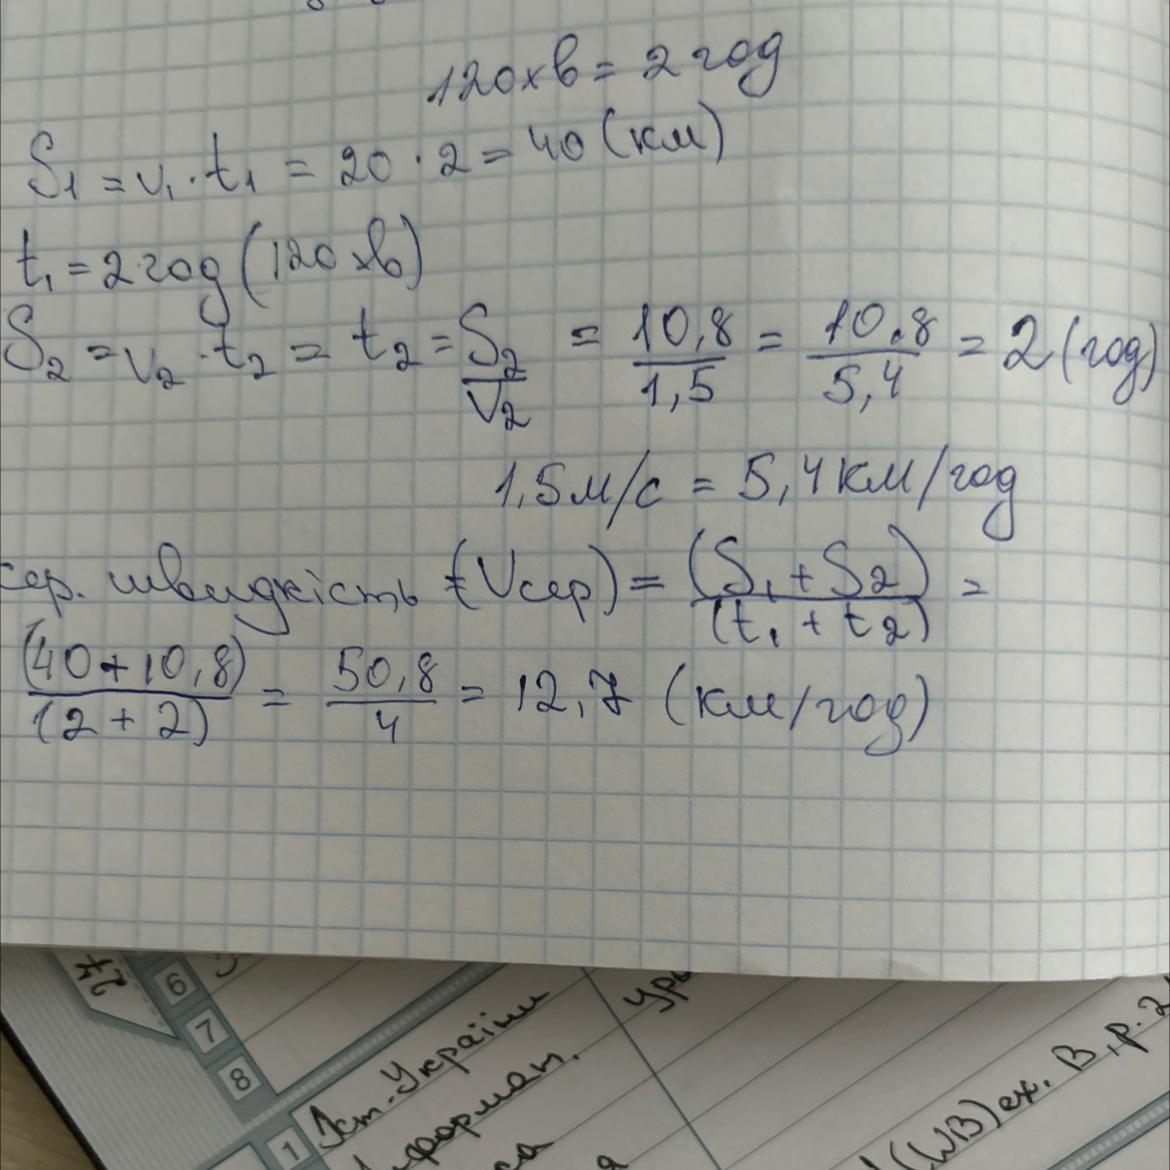 120хв = 2 год
S₁ = v₁ · t₁ = 20 · 2 = 40 (км)
t₁ = 2 год (120 хв)
S₂ = v₂ · t₂ = t₂ = S₂/V₂ = 10,8/1,5 = 10,8/5,4 = 2 (год)
1,5 м/с = 5,4 км/год
сер. швидкість (Vсер) = (S₁ + S₂)/(t₁ + t₂) =
(40+10,8)/(2+2) = 50,8/4 = 12,7 (км/год)
6
7
8
1 Іст. України